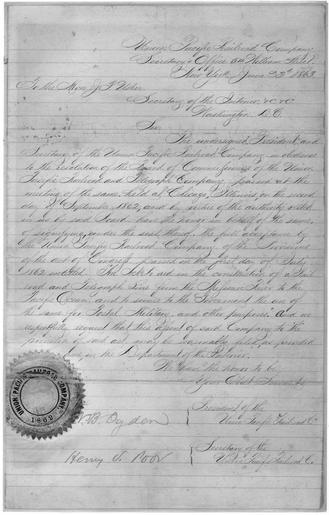 Union Pacific Railroad Company
Secretary's Office 54 William Street,
New York June 22nd 1863.
To the Hon. J. P. Usher
Secretary of the Interior &c &c
Washington D.C.
Sir
The undersigned President and
Secretary of the Union Pacific Railroad Company in obedience
to the resolution of the Board of Commissioners of the Union
Pacific Railroad and Telegraph Company passed at the
meeting of the same, held at Chicago, Illinois on the second
day of September 1862, and by virtue of the authority vested
in us by said Board, have the honor in behalf of the same,
of signifying, under the seal thereof, the full acceptance by
the Union Pacific Railroad Company, of the Provisions
of the act of Congress passed on the first day of July
1862 entitled An Act to aid in the construction of a Rail
road and Telegraph Line from the Missouri River to the
Pacific Ocean, and to secure to the Government the use of
the same for Postal, Military, and other purposes, and we
respectfully request that this assent of said Company to the
provisions of said act, may be seasonably filed, as provided
in the Department of the Interior.
We have the honor to be
Your Obdt Servants
UNION PACIFIC RAILROAD COMPANY
1862
W. B. Ogden
President of the
Union Pacific Railroad Co
Henry V. Poor
Secretary of the
Union Pacific Railroad Co.